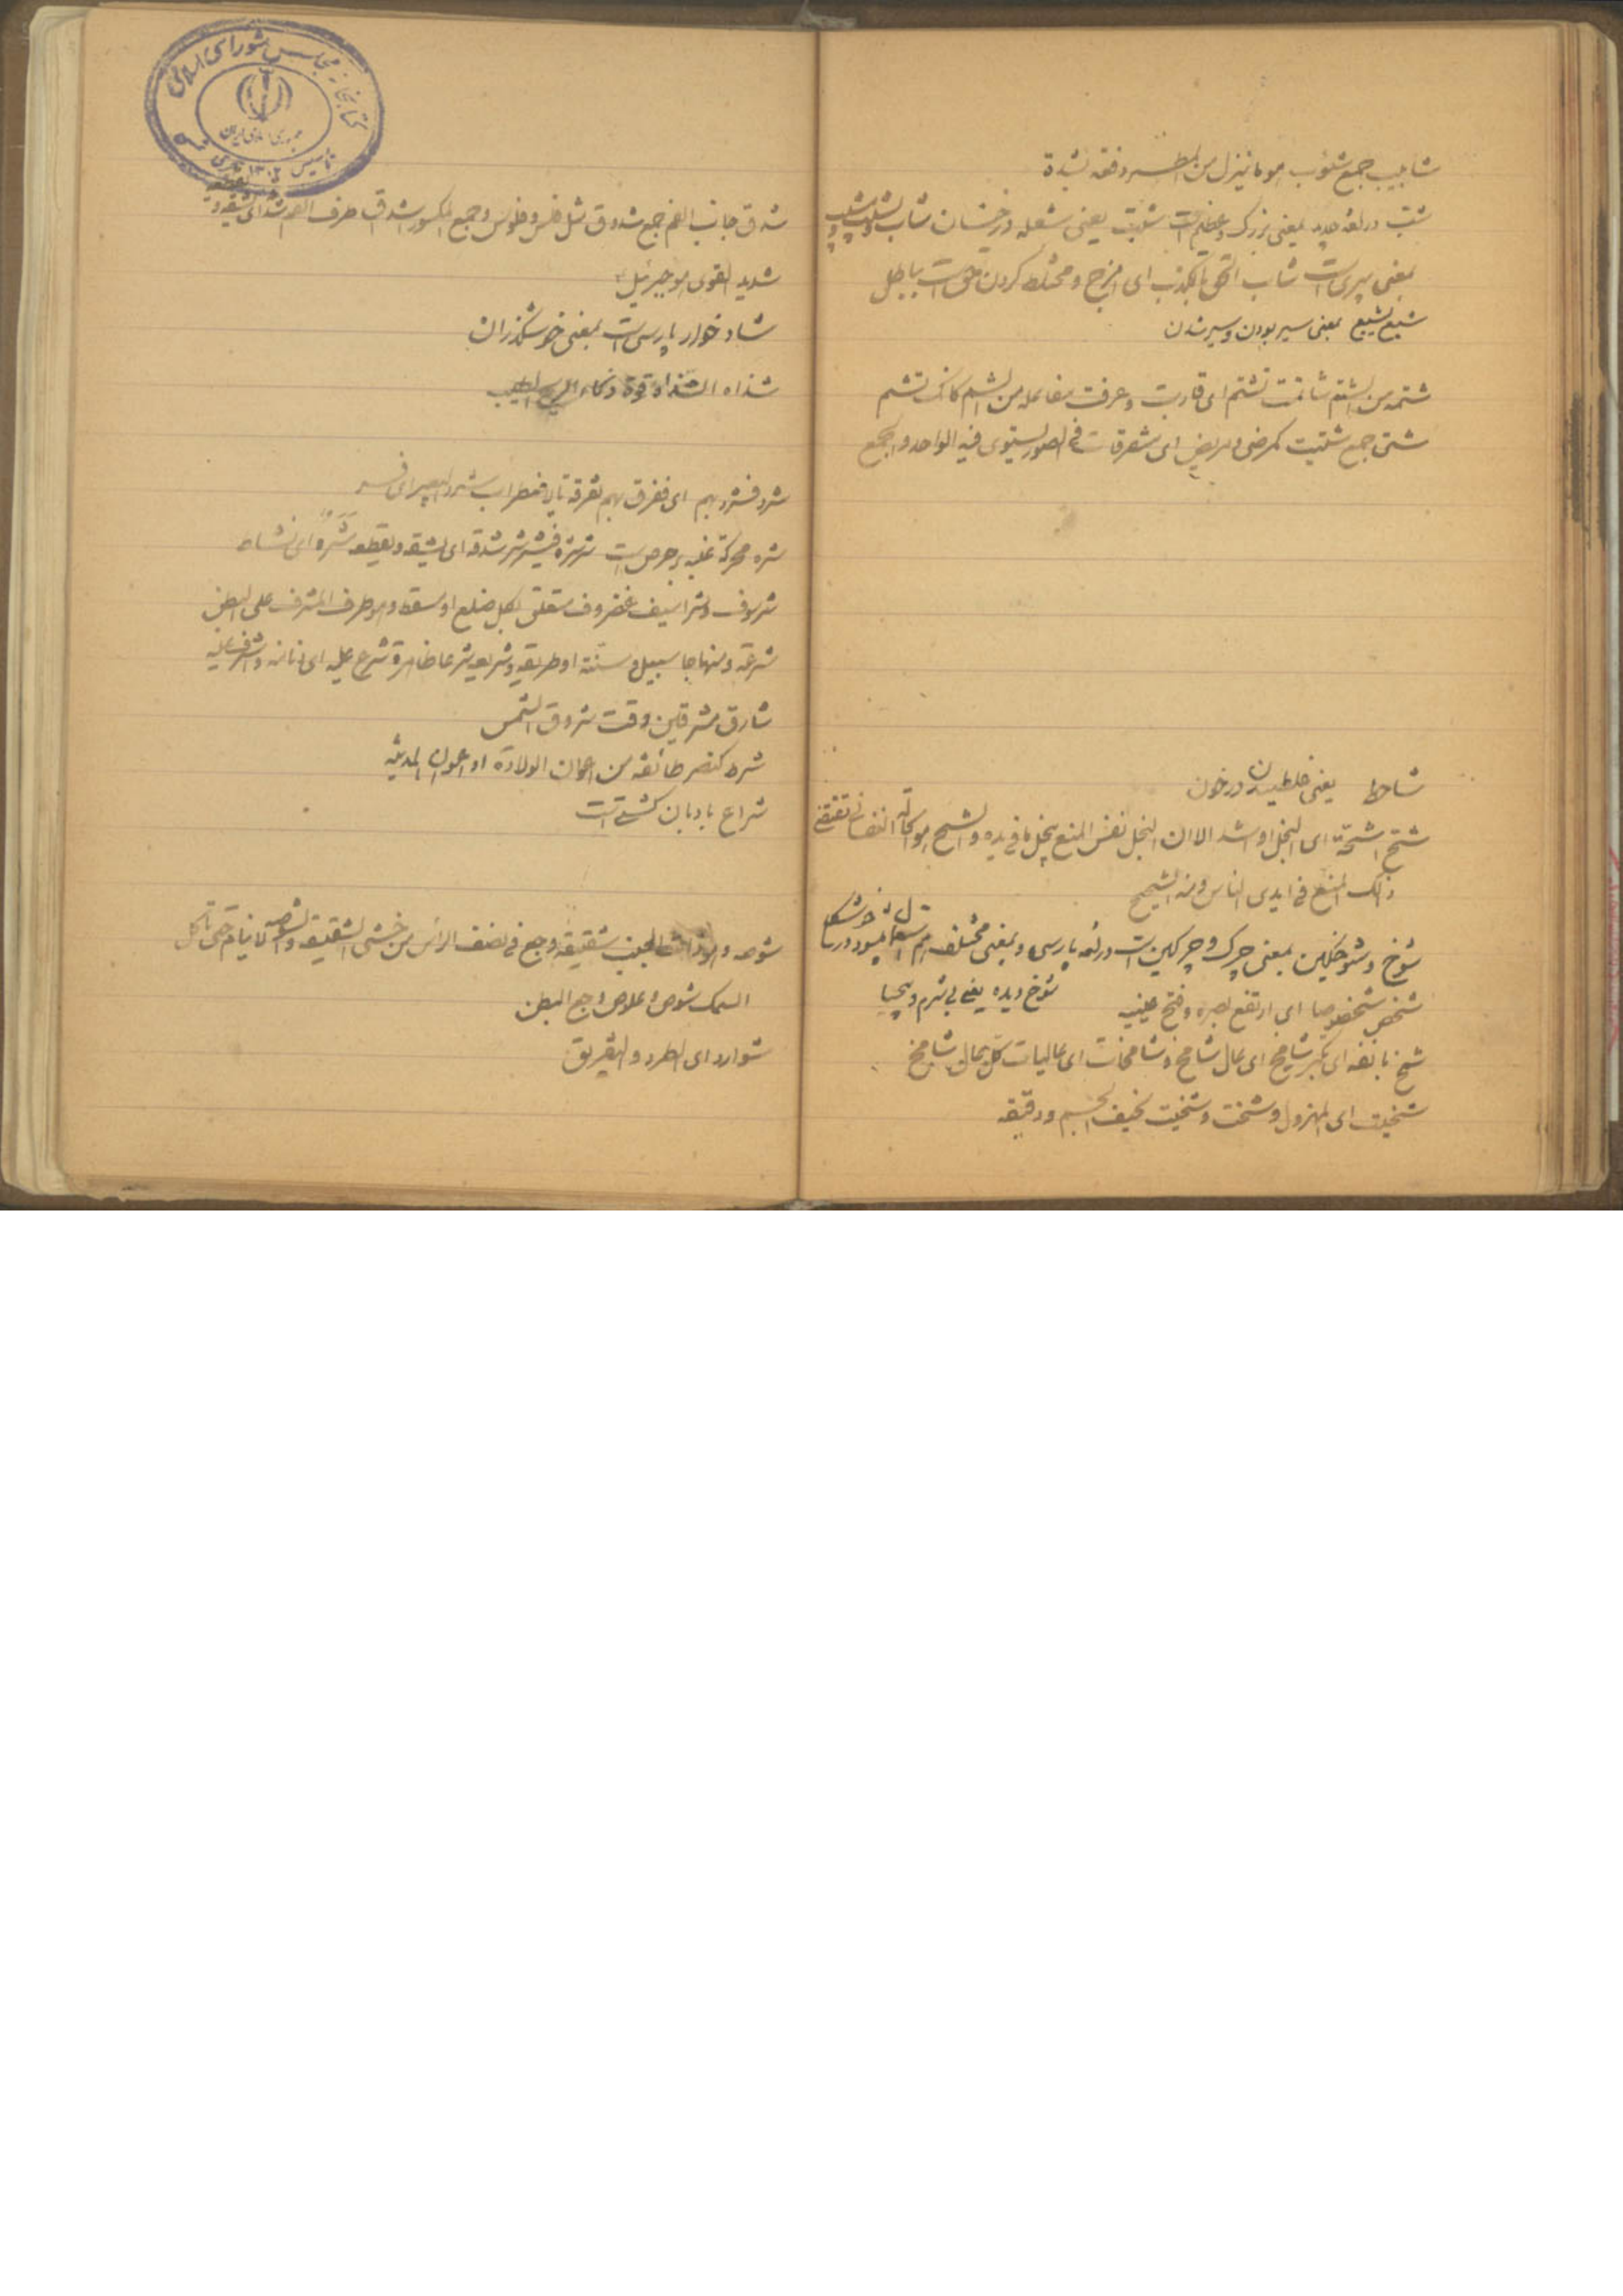 شابیب جمع شئوب هو ما ینزل من المطر دفعه بشدة
شب در لغه جدید بمعنی بزرک و عظیم است شبت یعنی شعله درخشان شاب یشوب
بمعنی پیری است شاب الحق بالکذب ای مزج و مختلط کردن حق است بباطل
شبع یشبع بمعنی سیر بودن و سیر شدن
شتمه من الشتم شاتمت تشتم ای قاربت و عرفت مفاعله من الشتم کانک تشتم
شتی جمع شتیت کمرضی و مریض ای متفرقات فی الصور یستوی فیه الواحد و الجمع
شاحط یعنی غلطیدن در خون
شح اشحة ای البخل او اشد الا ان البخل نفس المنع بخل بما فی یده و الشح هو حالة النفسانی تقتضی
ذلک المنع فی ایدی الناس و منه الشحیح
شوخ و شوخکین بمعنی چرک و چرکین است در لغه پارسی و بمعنی مختلف هم استعمال میشود در
شوخ دیده یعنی بی شرم و بیحیا
شخص شخوصا ای ارتفع بصره و فتح عینیه
شمخ بانفه ای تکبر شامخ ای عال شامخ و شامخات ای عالیات کل عال شامخ
شخیت ای المهزول و شخت و شخیت نحیف الجسم و دقیقه
کتابخانه مجلس شورای اسلامی
جمهوری اسلامی ایران
تأسیس ۱۳۰۲
شدق جانب الفم جمع شدوق مثل فلس و فلوس و جمع المکسور اشداق طرف الفم
شدید القوی هو جبرئیل
شاد خوار پارسی است بمعنی خوشگذران
شذاه الشذا قوة ذکاء الریح الطیب
شرد فشرد بهم ای ففرق بهم تفرقة باضطراب شرد البعیر ای
شره محرکة غلبه حرص است شرشره فیشرشر شدقه ای یشقه و یقطعه شرة ای نشاط
شرسوف و شراسیف غضروف متعلق بکل ضلع او مسقط و هو طرف المشرف علی البطن
شرعة و منهاجا سبیل و سنة او طریقه و شریعه شرعا ظاهرة شرع علیه ای
شارق مشرقین وقت شروق الشمس
شرط کنصر طائفه من اعوان الولاة او اعوان المدینه
شراع بادبان کشتی است
شوصه و هو ذات الجنب شقیقه وجع فی نصف الرأس من خشی الشقیقه و الشوصه لا ینام حتی یأکل
السمک شوص و علوص وجع البطن
شوارد ای الطرد و التفریق